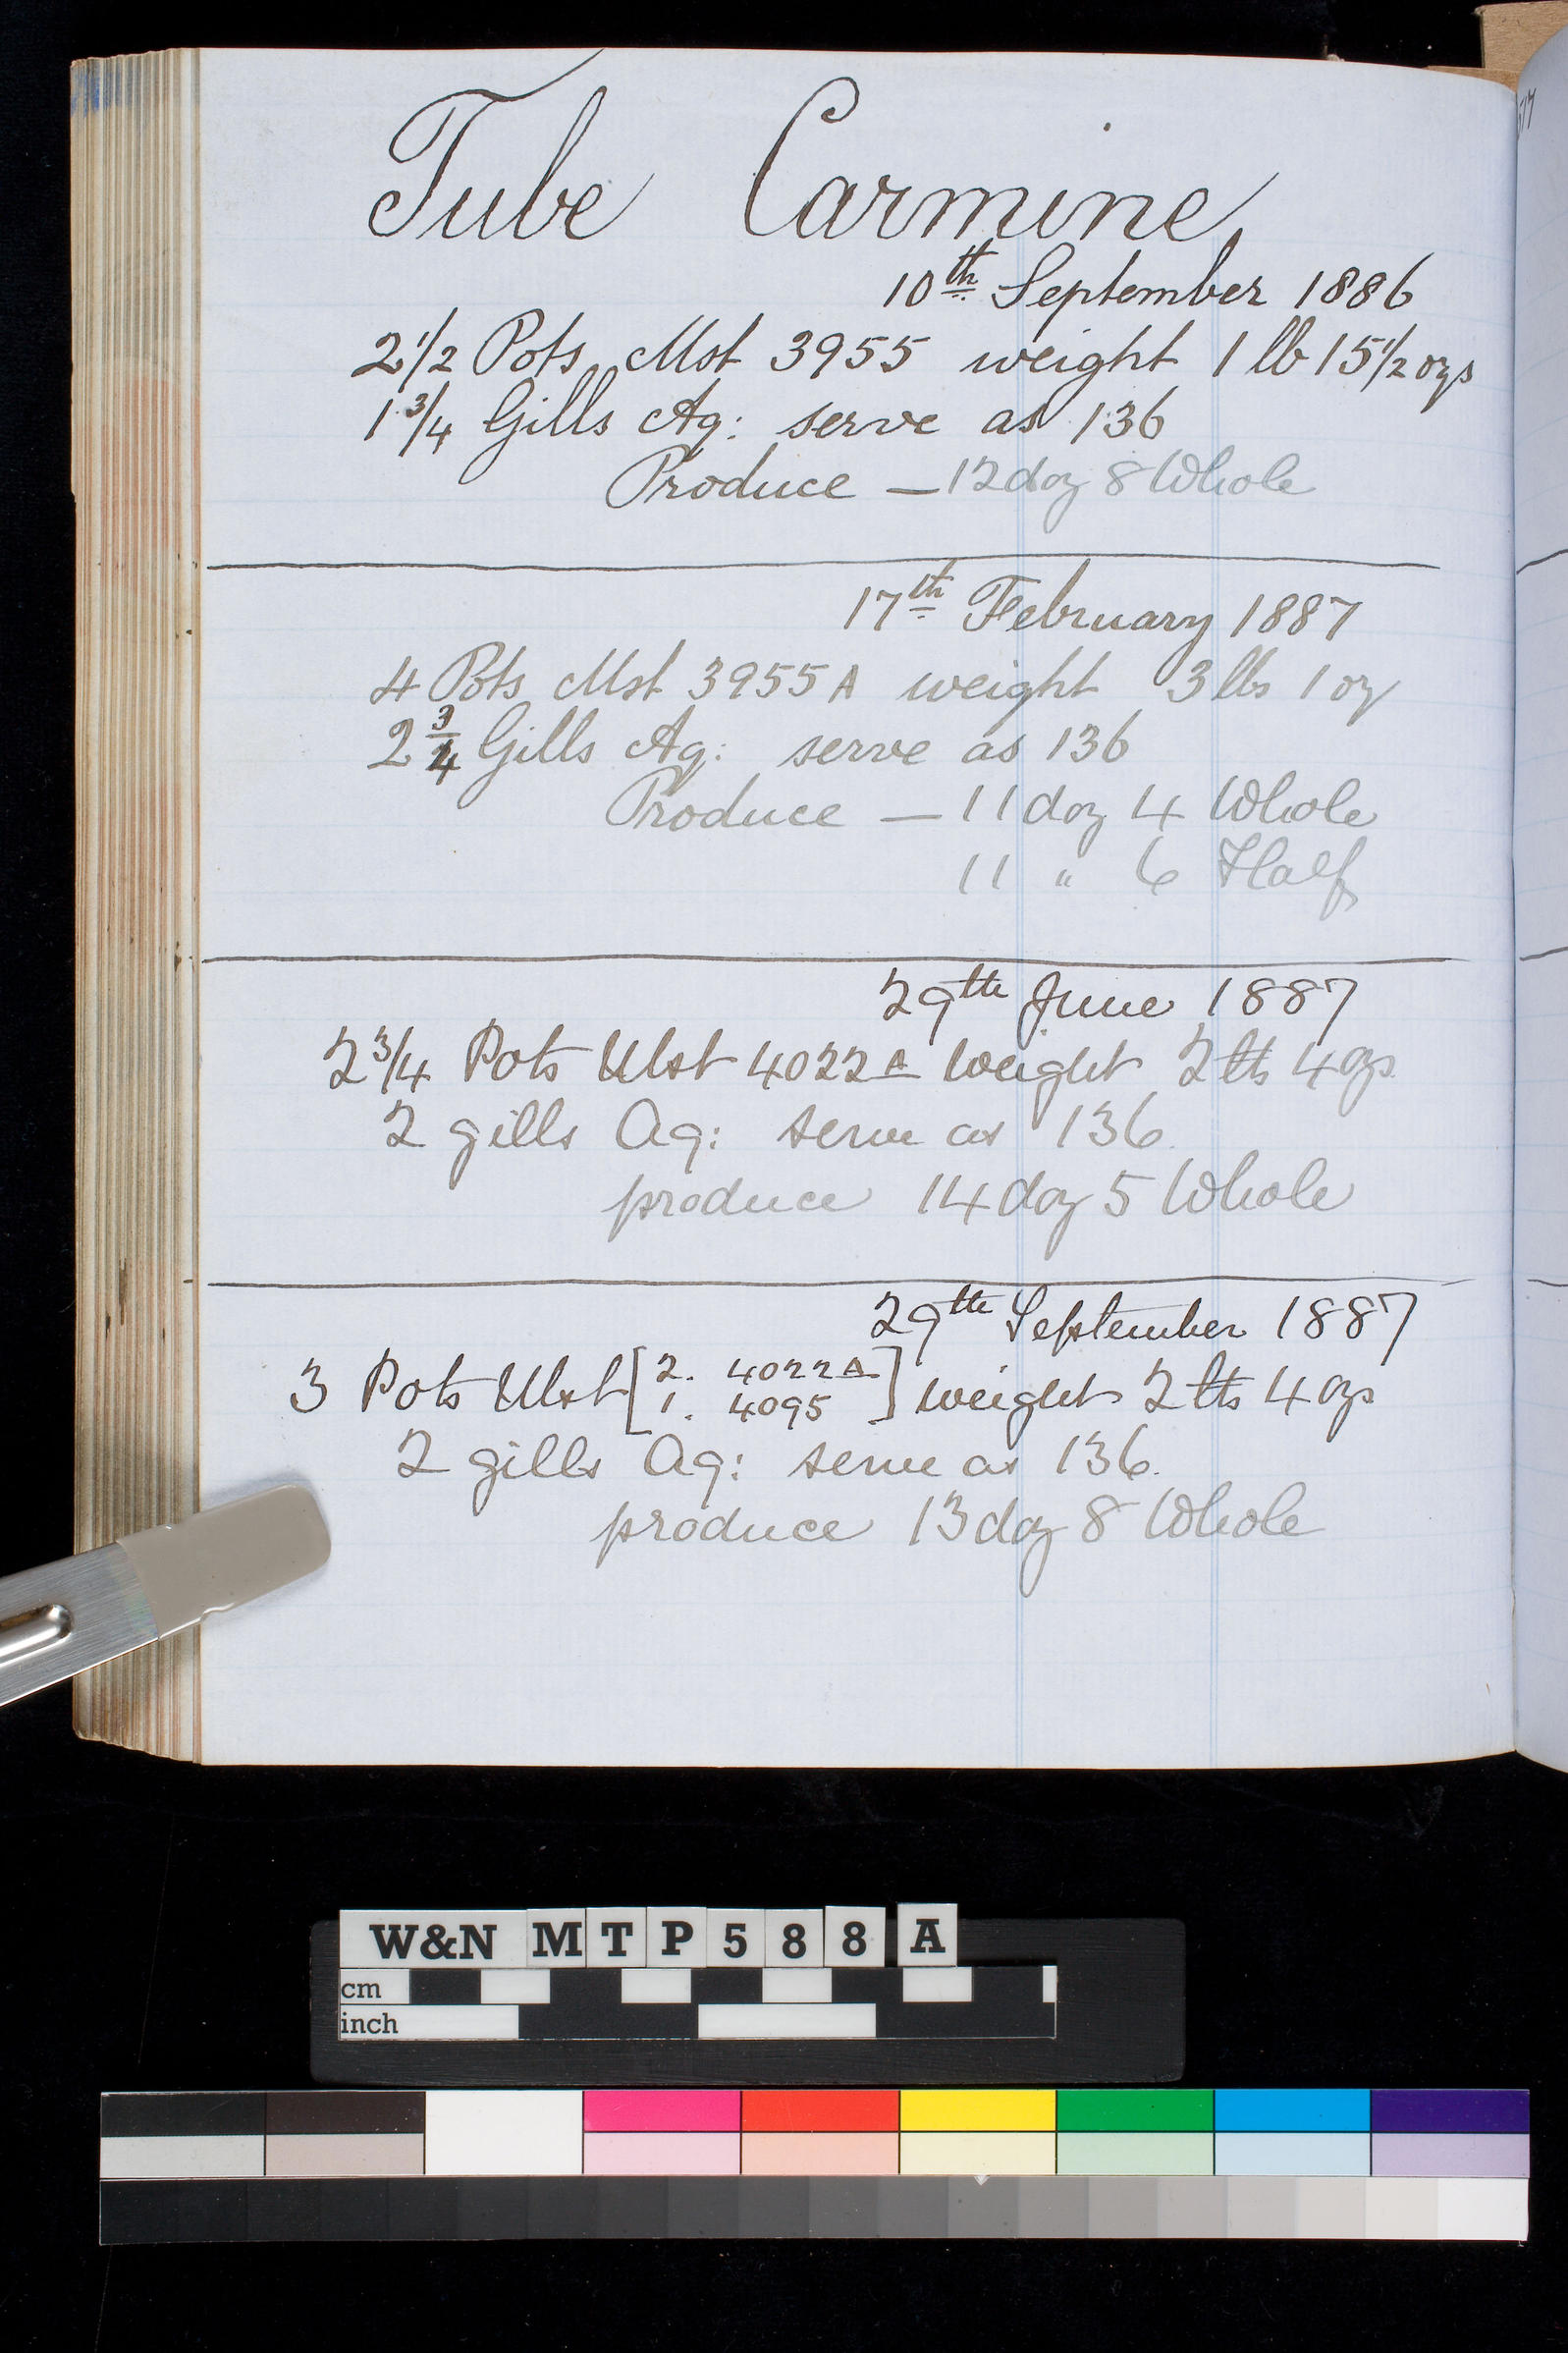 Tube Carmine
10th September 1886
2 1/2 Pots Mst 3955 weight 1 lb 15 1/2 ozs
1 3/4 Gills Aq: serve as 136
Produce — 12 doz 8 Whole
17th February 1887
4 Pots Mst 3955 A weight 3 lbs 1 oz
2 3/4 Gills Aq: serve as 136
Produce — 11 doz 4 Whole
11 " 6 Half
29th June 1887
2 3/4 Pots Mst 4022 A weight 2 lbs 4 ozs
2 gills Aq: serve as 136
produce 14 doz 5 Whole
29th September 1887
3 Pots Mst [2. 4022 A
1. 4095] weight 2 lbs 4 ozs
2 gills Aq: serve as 136.
produce 13 doz 8 Whole
W&N MTP588 A
cm
inch